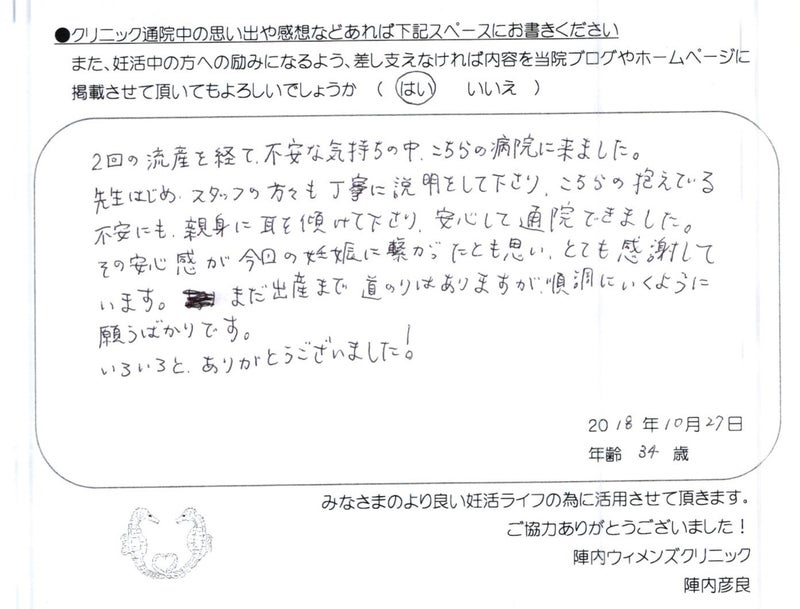 ●クリニック通院中の思い出や感想などあれば下記スペースにお書きください
また、妊活中の方への励みになるよう、差し支えなければ内容を当院ブログやホームページに
掲載させて頂いてもよろしいでしょうか （ はい　いいえ ）
2回の流産を経て、不安な気持ちの中、こちらの病院に来ました。
先生はじめ、スタッフの方々も丁寧に説明をして下さり、こちらの抱えている
不安にも、親身に耳を傾けて下さり、安心して通院できました。
その安心感が今回の妊娠に繋がったとも思い、とても感謝して
います。まだ出産まで道のりはありますが、順調にいくように
願うばかりです。
いろいろと、ありがとうございました!
2018年10月27日
年齢 34 歳
みなさまのより良い妊活ライフの為に活用させて頂きます。
ご協力ありがとうございました！
陣内ウィメンズクリニック
陣内彦良